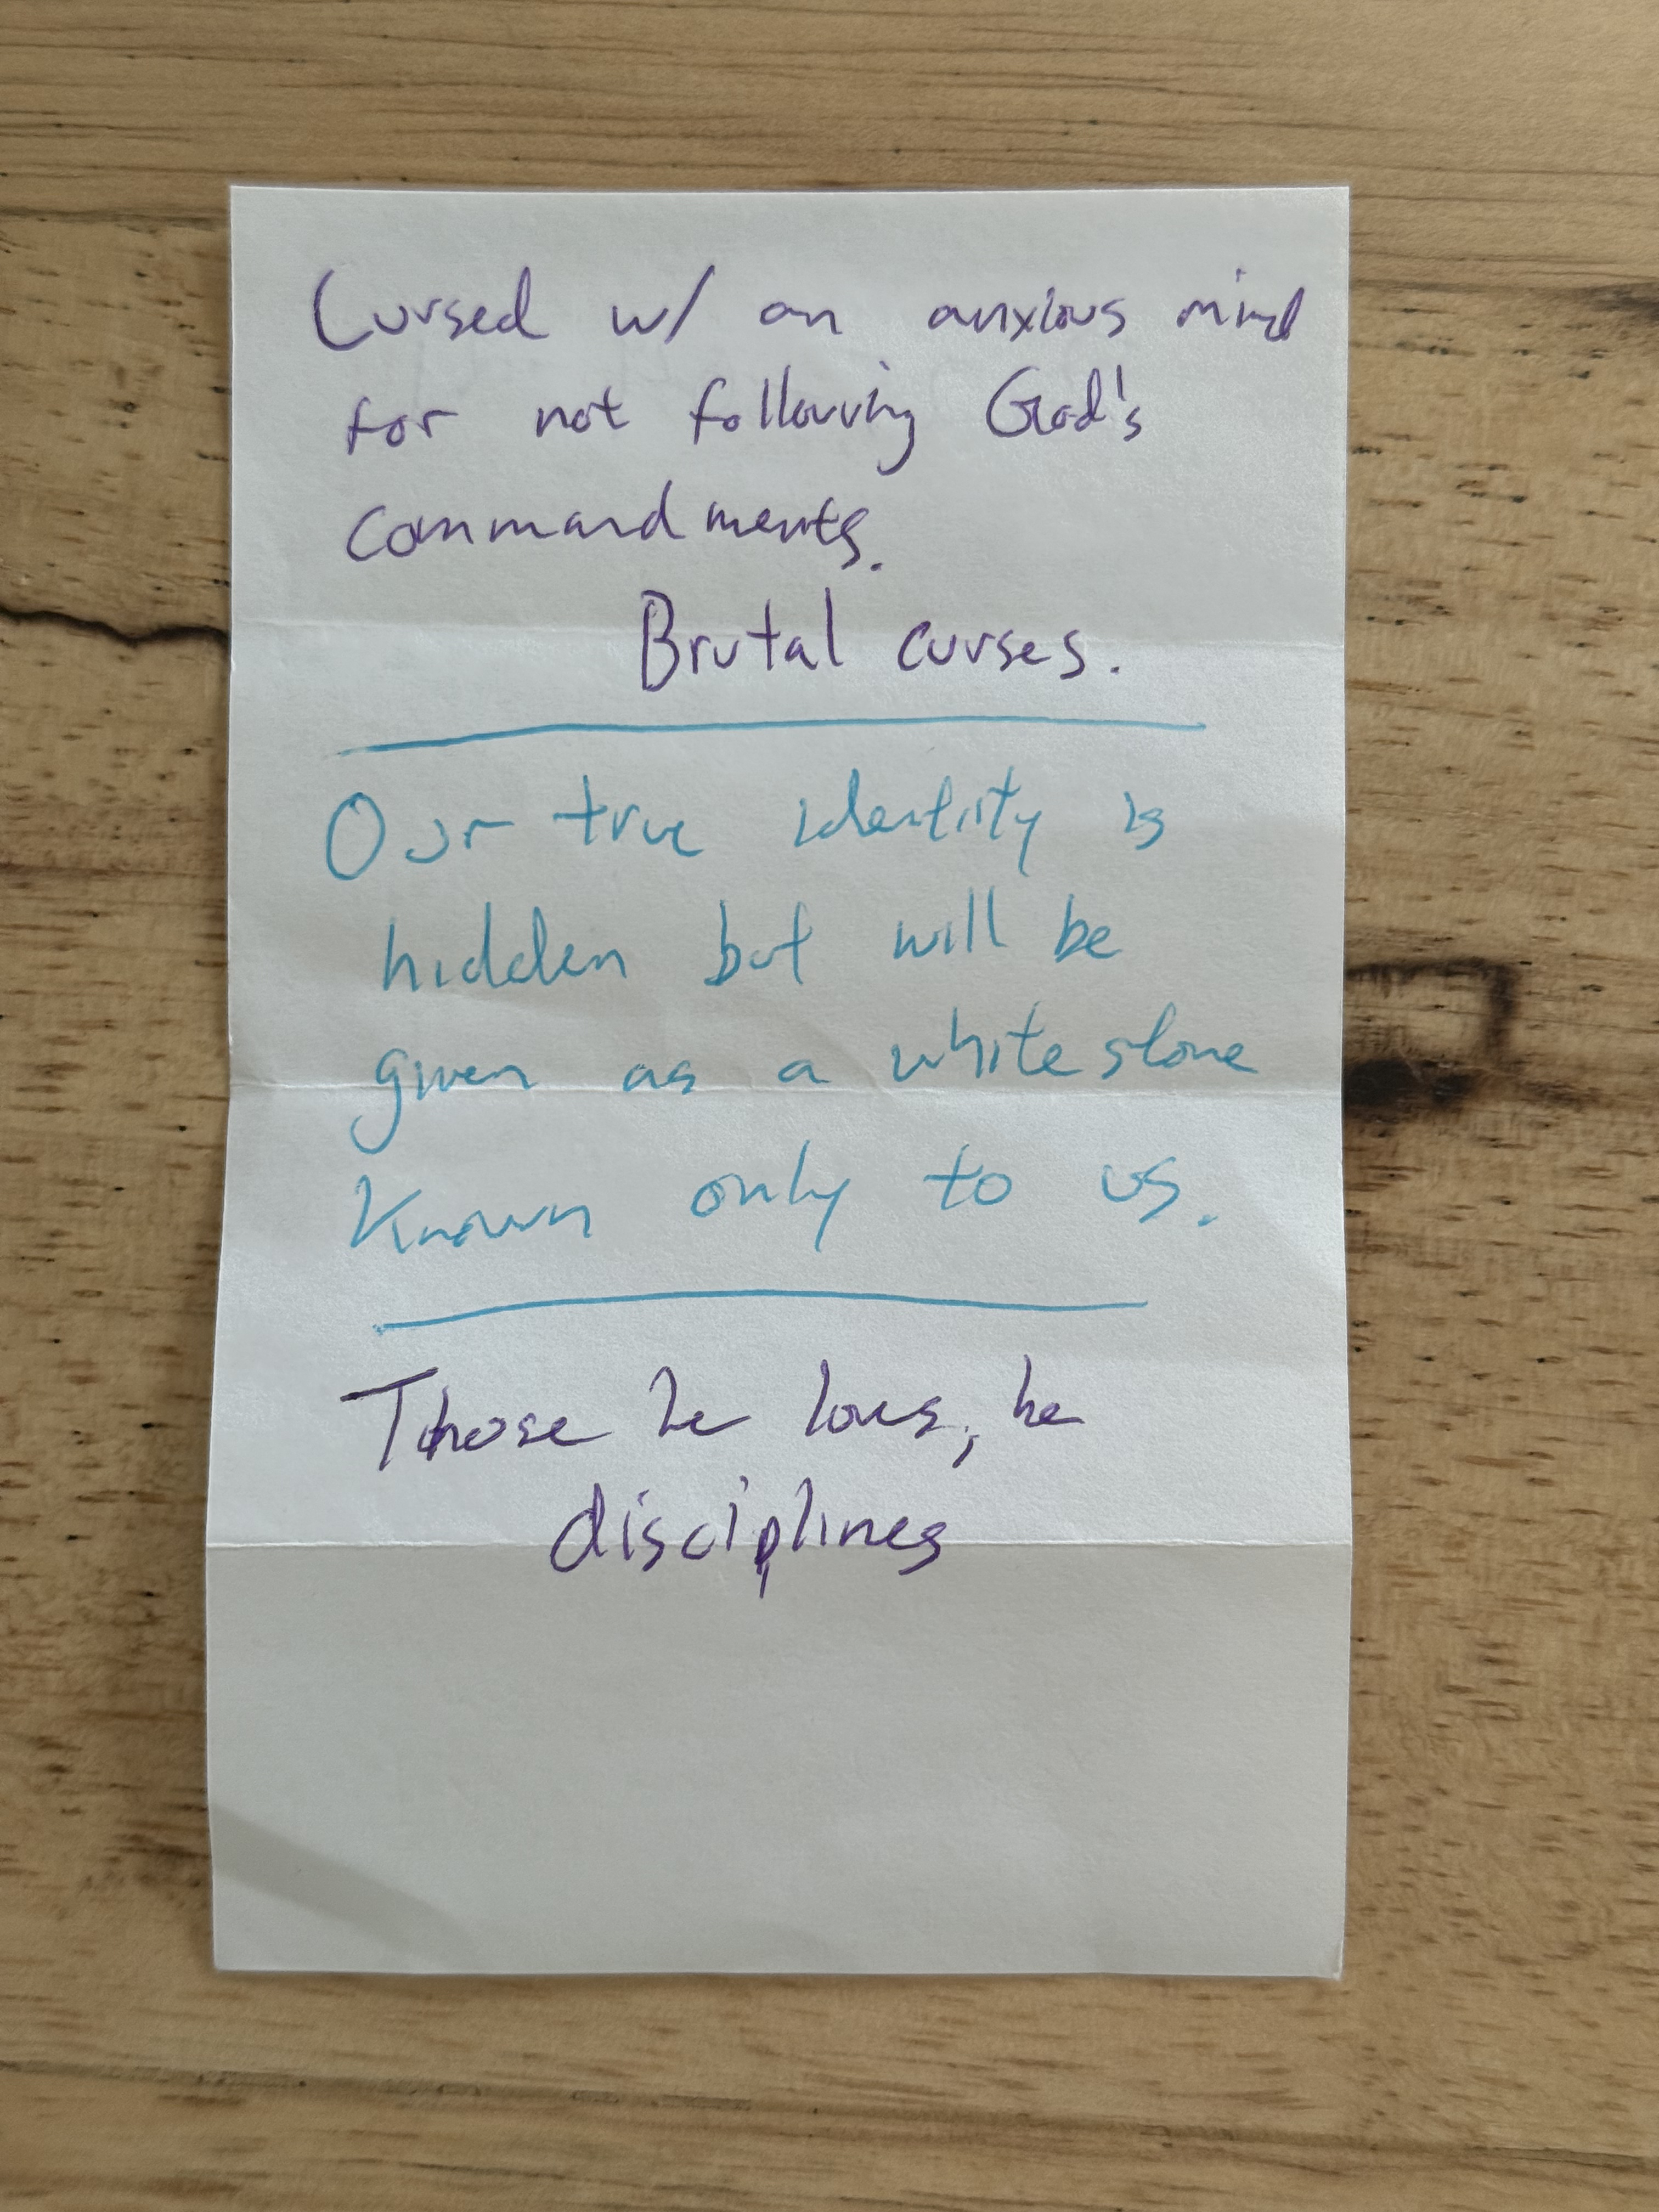 Cursed w/ an anxious mind
for not following God's
commandments.
Brutal curses.
Our true identity is
hidden but will be
given as a white stone
known only to us.
Those he loves, he
disciplines